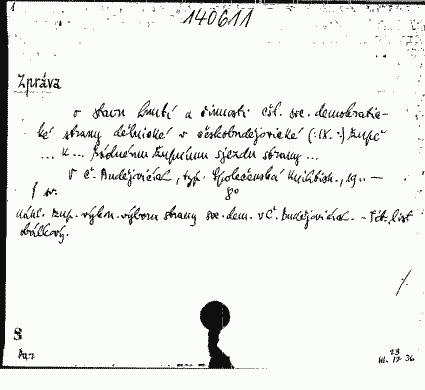 140611
Zpráva
o stavu hnutí a činnosti čsl. soc. demokratic-
ké strany dělnické v českobudějovické (:IX.:) župě
... k ... řádnému župnímu sjezdu strany ...
V Č. Budějovicích, typ. Společenská knihtisk., 19.. —
f sv. 8°
Nákl. žup. výkon. výboru strany soc. dem. v Č. Budějovicích. - Tit. list
obálkový.
8
III. 17 36